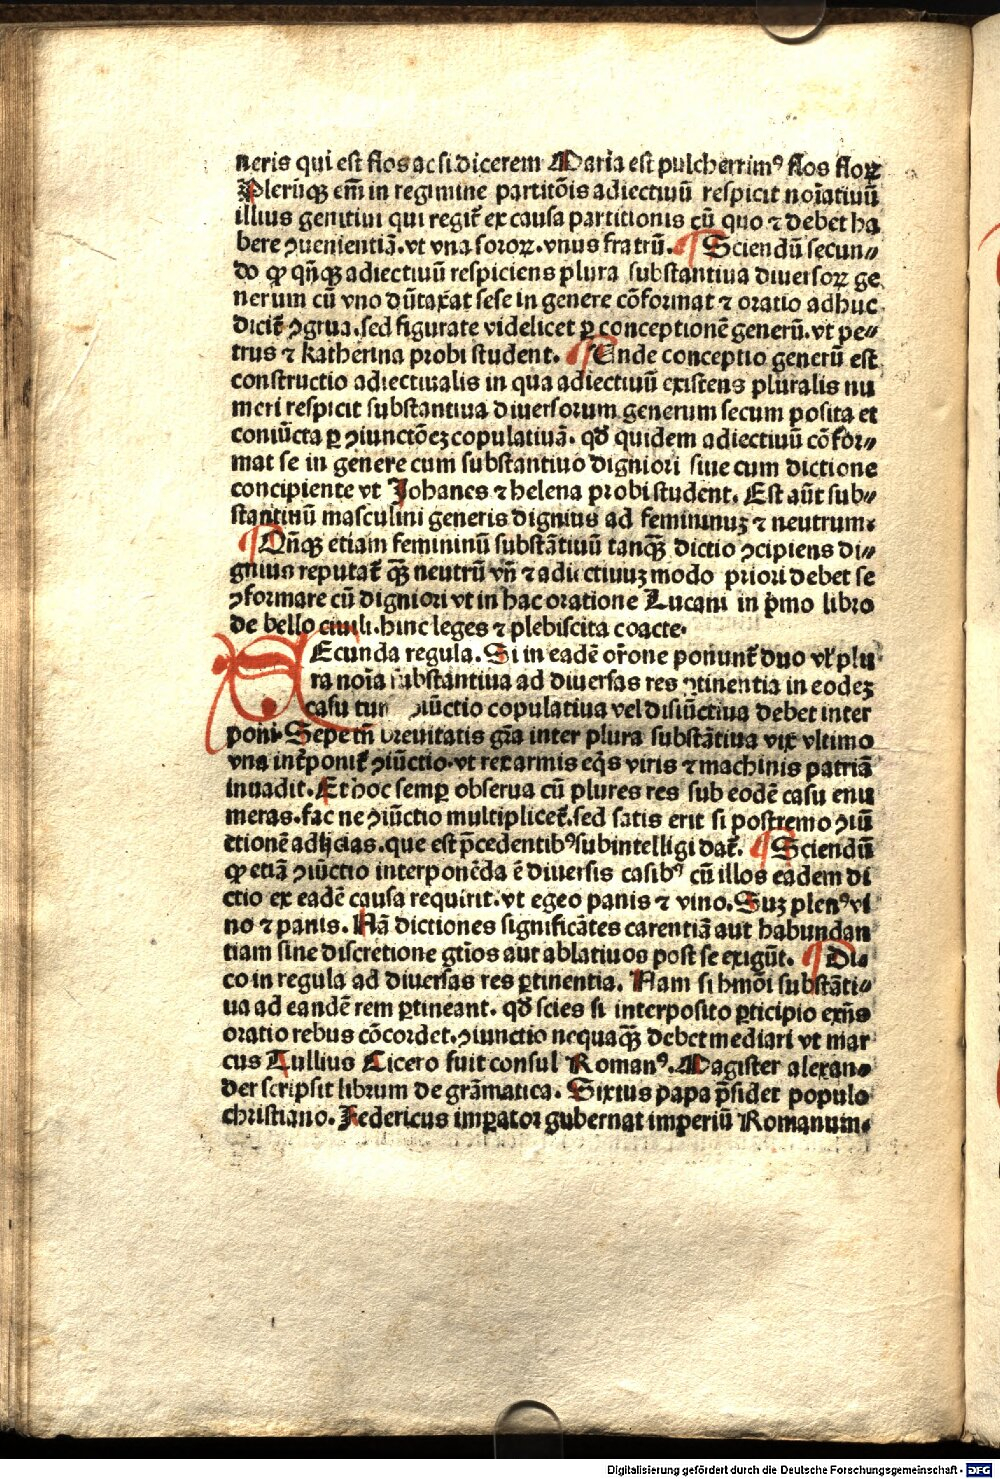 neris qui est flos ac si dicerem Maria est pulcherrimꝰ flos floꝝ
Plerũqꝫ em̃ in regimine partitõis adiectiuũ respicit noĩatiuũ
illius genitiui qui regit̃ ex causa partitionis cũ quo ⁊ debet ha
bere ꝯuenientiã. vt vna soroꝝ. vnus fratrũ. ¶ Sciendũ secun⸗
do ꝙ qñqꝫ adiectiuũ respiciens plura substantiua diuersoꝝ ge
nerum cũ vno dũtaxat sese in genere cõformat ⁊ oratio adhuc
dicit̃ ꝯgrua. sed figurate videlicet ꝑ conceptionẽ generũ. vt pe⸗
trus ⁊ katherina probi student. ¶ Unde conceptio generũ est
constructio adiectiualis in qua adiectiuũ existens pluralis nu
meri respicit substantiua diuersorum generum secum posita et
coniũcta ꝑ ꝯiunctõeꝫ copulatiuã. qđ quidem adiectiuũ cõfor⸗
mat se in genere cum substantiuo digniori siue cum dictione
concipiente vt Johanes ⁊ helena probi student. Est aũt sub⸗
stantiuũ masculini generis dignius ad femininuꝫ ⁊ neutrum.
¶ Qñqꝫ etiam femininũ substãtiuũ tanqꝫ̃ dictio ꝯcipiens di⸗
gnius reputat̃ qꝫ̃ neutrũ vñ ⁊ adiectiuuꝫ modo priori debet se
ꝯformare cũ digniori vt in hac oratione Lucani in p̃mo libro
de bello ciuili. hinc leges ⁊ plebiscita coacte.
SEcunda regula. Si in eadẽ or̃one ponunt̃ duo vl̃ plu
ra noĩa substantiua ad diuersas res ꝑtinentia in eodeꝫ
casu tunc ꝯiũctio copulatiua vel disiũctiua debet inter
poni. Sepe tñ breuitatis gr̃a inter plura substãtiua vix vltimo
vna int̃ponit̃ ꝯiũctio. vt rex armis eq̃s viris ⁊ machinis patriã
inuadit. Et hoc semꝑ obserua cũ plures res sub eodẽ casu enu
meras. fac ne ꝯiũctio multiplicet̃. sed satis erit si postremo ꝯiũ
ctionẽ adijcias. que est p̃cedentibꝰ subintelligi dat̃. ¶ Sciendũ
ꝙ etiã ꝯiũctio interponẽda ẽ diuersis casibꝰ cũ illos eadem di
ctio ex eadẽ causa requirit. vt egeo panis ⁊ vino. Suꝫ plenꝰ vi
no ⁊ panis. Nã dictiones significãtes carentiã aut habundan
tiam sine discretione gtĩos aut ablatiuos post se exigũt. ¶ Di⸗
co in regula ad diuersas res ꝑtinentia. Nam si hmõi substãti⸗
ua ad eandẽ rem ꝑtineant. qđ scies si interposito ꝑticipio exñs
oratio rebus cõcordet. ꝯiunctio nequaqꝫ̃ debet mediari vt mar
cus Tullius Cicero fuit consul Romanꝰ. Magister alexan⸗
der scripsit librum de grãmatica. Sixtus papa p̃sidet populo
christiano. Federicus imꝑator gubernat imperiũ Romanum.
Digitalisierung gefördert durch die Deutsche Forschungsgemeinschaft - DFG